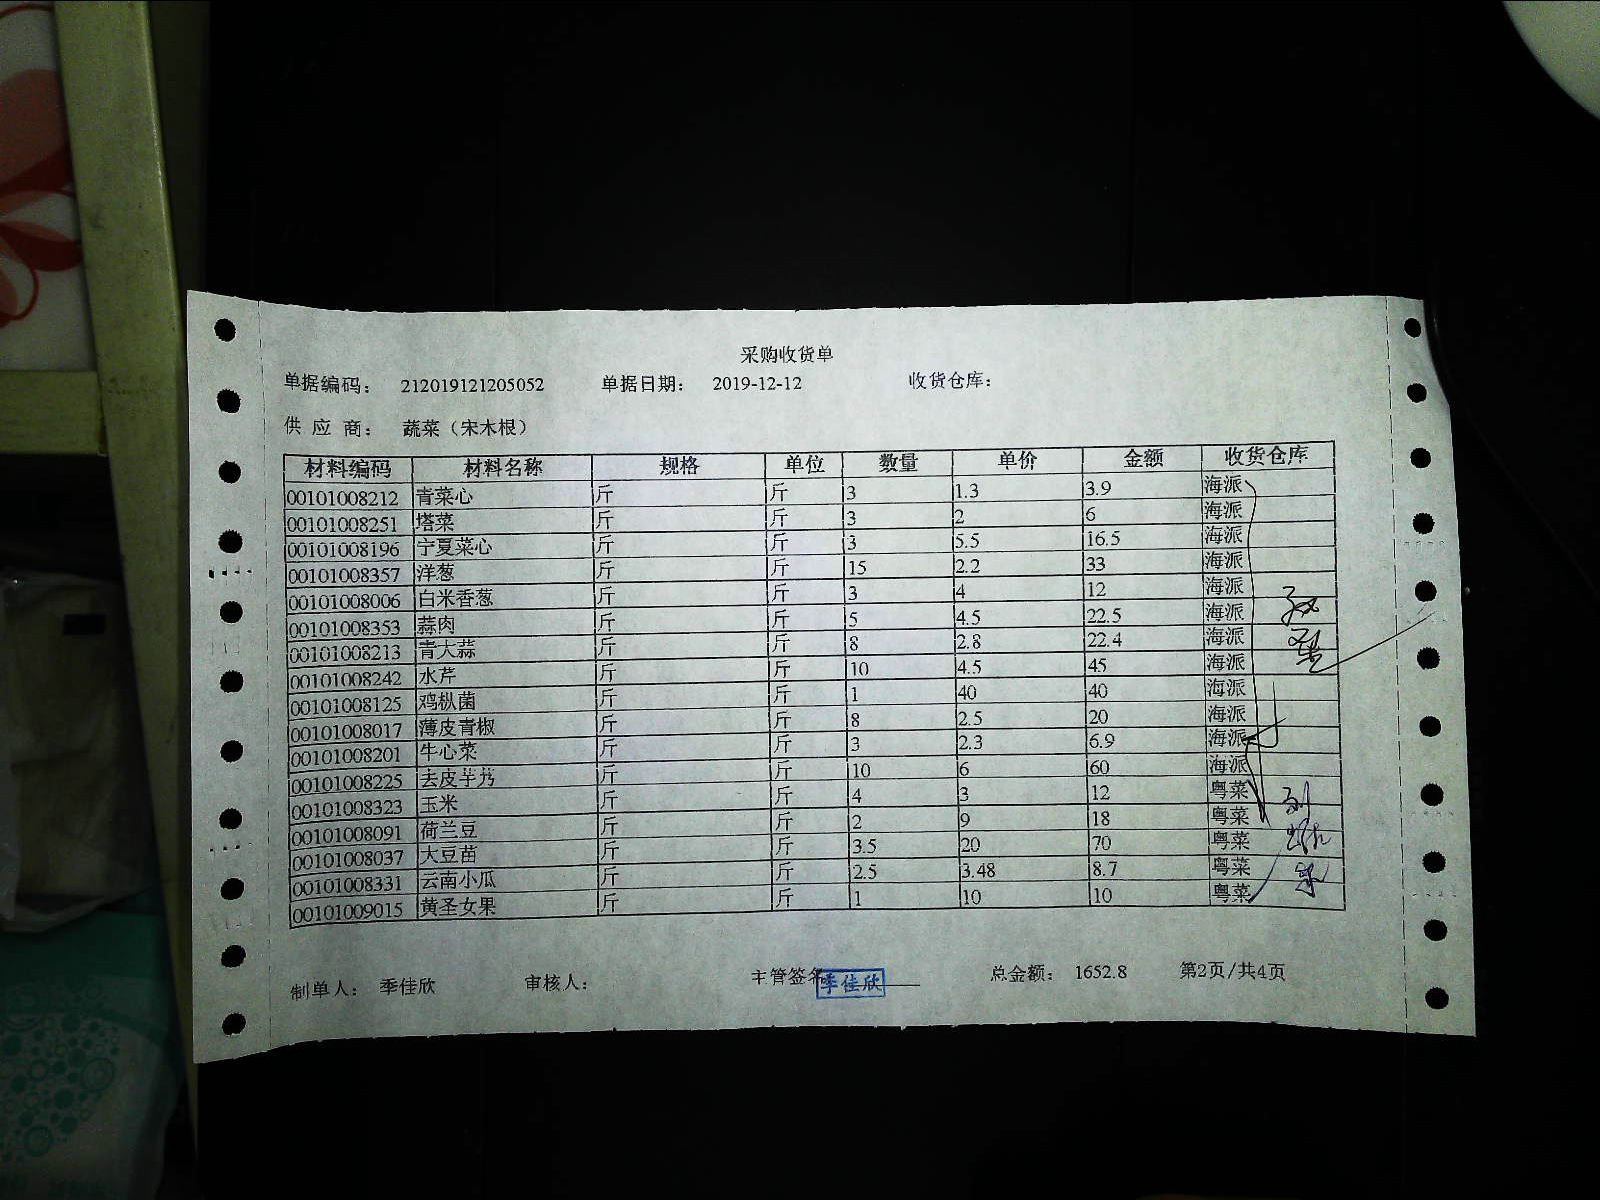 采购收货单
单据编码： 212019121205052 单据日期： 2019-12-12 收货仓库：
供 应 商： 蔬菜（宋木根）
材料编码 材料名称 规格 单位 数量 单价 金额 收货仓库
00101008212 青菜心 斤 斤 3 1.3 3.9 海派
00101008251 塔菜 斤 斤 3 2 6 海派
00101008196 宁夏菜心 斤 斤 3 5.5 16.5 海派
00101008357 洋葱 斤 斤 15 2.2 33 海派
00101008006 白米香葱 斤 斤 3 4 12 海派
00101008353 蒜肉 斤 斤 5 4.5 22.5 海派
00101008213 青大蒜 斤 斤 8 2.8 22.4 海派
00101008242 水芹 斤 斤 10 4.5 45 海派
00101008125 鸡枞菌 斤 斤 1 40 40 海派
00101008017 薄皮青椒 斤 斤 8 2.5 20 海派
00101008201 牛心菜 斤 斤 3 2.3 6.9 海派
00101008225 去皮芋艿 斤 斤 10 6 60 海派
00101008323 玉米 斤 斤 4 3 12 粤菜
00101008091 荷兰豆 斤 斤 2 9 18 粤菜
00101008037 大豆苗 斤 斤 3.5 20 70 粤菜
00101008331 云南小瓜 斤 斤 2.5 3.48 8.7 粤菜
00101009015 黄圣女果 斤 斤 1 10 10 粤菜
制单人： 季佳欣 审核人： 主管签名 季佳欣 总金额： 1652.8 第2页/共4页